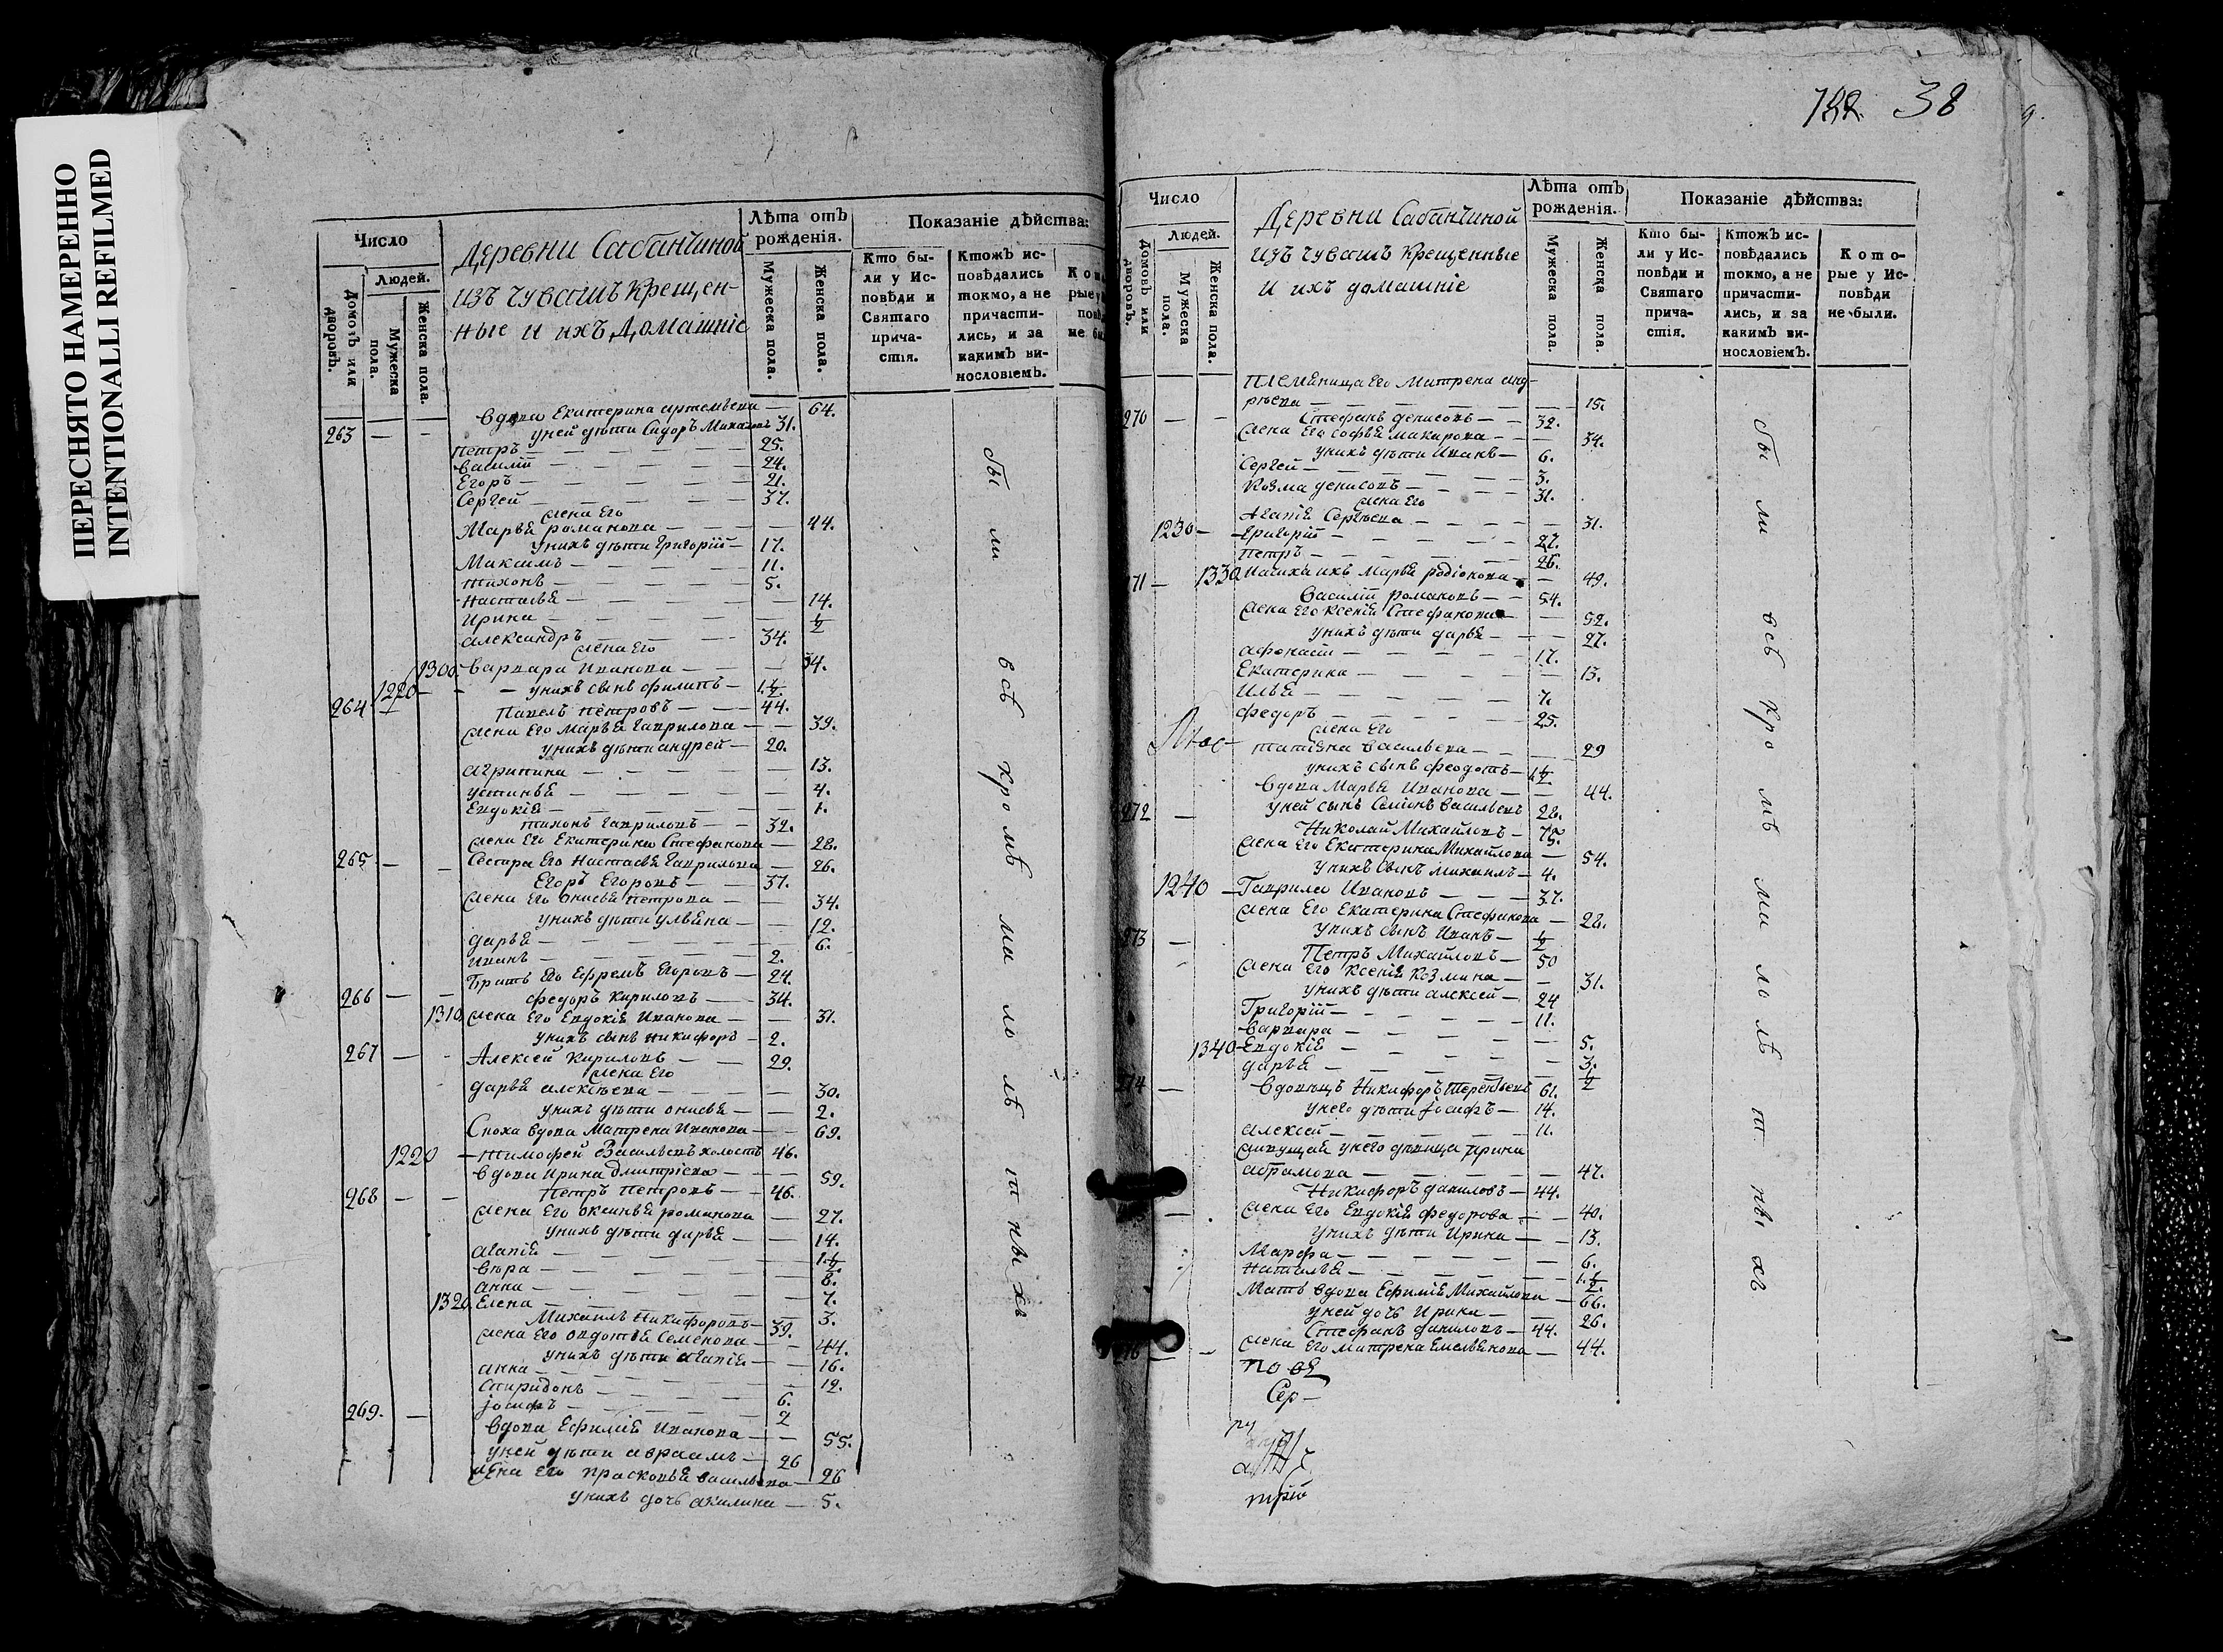 ПЕРЕСНЯТО НАМЕРЕННО
INTENTIONALLI REFILMED
Число
Людей.
Домовъ или дворовъ.
Мужеска пола.
Женска пола.
Деревни Сабанчиной
изъ чувашъ крещен-
ные и ихъ домашніе
Лѣта отъ рожденія.
Мужеска пола.
Женска пола.
Показаніе дѣйства:
Кто были у Исповѣди и Святаго причастія.
Ктожъ исповѣдались токмо, а не причастились, и за какимъ винословіемъ.
бы ли всѣ кро мѣ ма ло лѣ т ны хъ
вдова Екатерина артемьева — 64.
263 — — уней дѣти Сидоръ 31.
Петръ — 25.
Василій — 24.
Егоръ — 21.
Сергей — 37.
жена Его
Марья романова — 44.
унихъ дѣти григорій — 17.
Максимъ — 11.
тихонъ — 5.
Настасья — 14.
Ирина — ½
александръ — 34.
жена Его
1300 варвара Иванова — 34.
1220 — унихъ сынъ филипъ — 1.½.
264 Павелъ петровъ — 44.
жена Его Марья гаврилова — 39.
унихъ дѣти андрей — 20.
агрипина — 13.
устинья — 4.
Евдокія — 1.
тихонъ гавриловъ — 32.
жена Его Екатерина Стефанова — 28.
265 — — Сестра Его Настасья гаврилова — 26.
Егоръ Егоровъ — 37.
жена Его Онисья петрова — 34.
унихъ дѣти ульяна — 12.
дарья — 6.
иванъ — 2.
братъ Его Ефремъ Егоровъ — 24.
266 — — федоръ кириловъ — 34.
1310 жена Его Евдокія Иванова — 31.
унихъ сынъ никифоръ — 2.
267 — — Алексей кириловъ — 29.
жена Его
дарья алексѣева — 30.
унихъ дѣти онисья — 2.
Сноха вдова Матрена Иванова — 69.
1220 — тимофей Васильевъ холостъ 46.
вдова Ирина дмитріева — 59.
268 — — петръ петровъ — 46.
жена Его оксинья романова — 27.
унихъ дѣти дарья — 14.
агапія — 1.½.
вѣра — 8.
анна — 7.
1320. Елена — 3.
Михаилъ Никифоровъ — 39.
жена Его овдотья Семенова — 44.
унихъ дѣти агапія — 16.
анна — 12.
спиридонъ — 6.
269. — іосифъ — 2
вдова Ефимія Иванова — 55.
уней дѣти авраамъ — 26
жена Его прасковья васильева — 26
унихъ дочь акилина — 5.
38
Число
Людей.
Домовъ или дворовъ.
Мужеска пола.
Женска пола.
Деревни Сабанчиной
изъ чувашъ крещенные
и ихъ домашніе
Лѣта отъ рожденія.
Мужеска пола.
Женска пола.
Показаніе дѣйства:
Кто были у Исповѣди и Святаго причастія.
Ктожъ исповѣдались токмо, а не причастились, и за какимъ винословіемъ.
Которые у Исповѣди не были.
бы ли всѣ кро мѣ ма ло лѣ т ны хъ
племяница Его Матрена анд-
рѣева — 15.
270 — Стефанъ денисовъ — 32.
жена Его софья макарова — 34.
унихъ дѣти Иванъ — 6.
Сергей — 3.
козма денисовъ — 31.
жена Его
Агапія Сергѣева — 31.
1230 — григорій — 27.
петръ — 26.
1330 Мачиха ихъ Марья родіонова — 49.
Василій романовъ — 54.
жена Его ксенія Стефанова — 52.
унихъ дѣти дарья — 27.
афонасій — 17.
Екатерина — 13.
Илья — 7.
федоръ — 25.
жена Его
татіяна васильева — 29
унихъ сынъ феодотъ — 1.½
вдова Марья Иванова — 44.
272 — уней сынъ Семіонъ васильевъ 28.
Николай Михайловъ — 75.
жена Его Екатерина Михайлова — 54.
унихъ сынъ михаилъ — 4.
1240 — Гаврила Ивановъ — 37.
жена Его Екатерина Стефанова — 28.
унихъ сынъ Иванъ — ½
Петръ Михайловъ — 50
жена Его ксенія козмина — 31.
унихъ дѣти алексей — 24
Григорій — 11.
варвара — 5.
1340 Евдокія — 3.
дарья — ½
вдовецъ Никифоръ терентьевъ 61.
унего дѣти іосифъ — 14.
алексей — 11.
живущая унего дѣвица Ирина
абрамова — 47.
Никифоръ даниловъ — 44.
жена Его Евдокія федорова — 40.
унихъ дѣти Ирина — 13.
Марфа — 6.
Наталья — 1.½.
Мать вдова Ефимія Михайлова — 66.
уней дочь Ирина — 26.
Стефанъ даниловъ — 44.
жена Его матрена Емельянова — 44.
Сер-